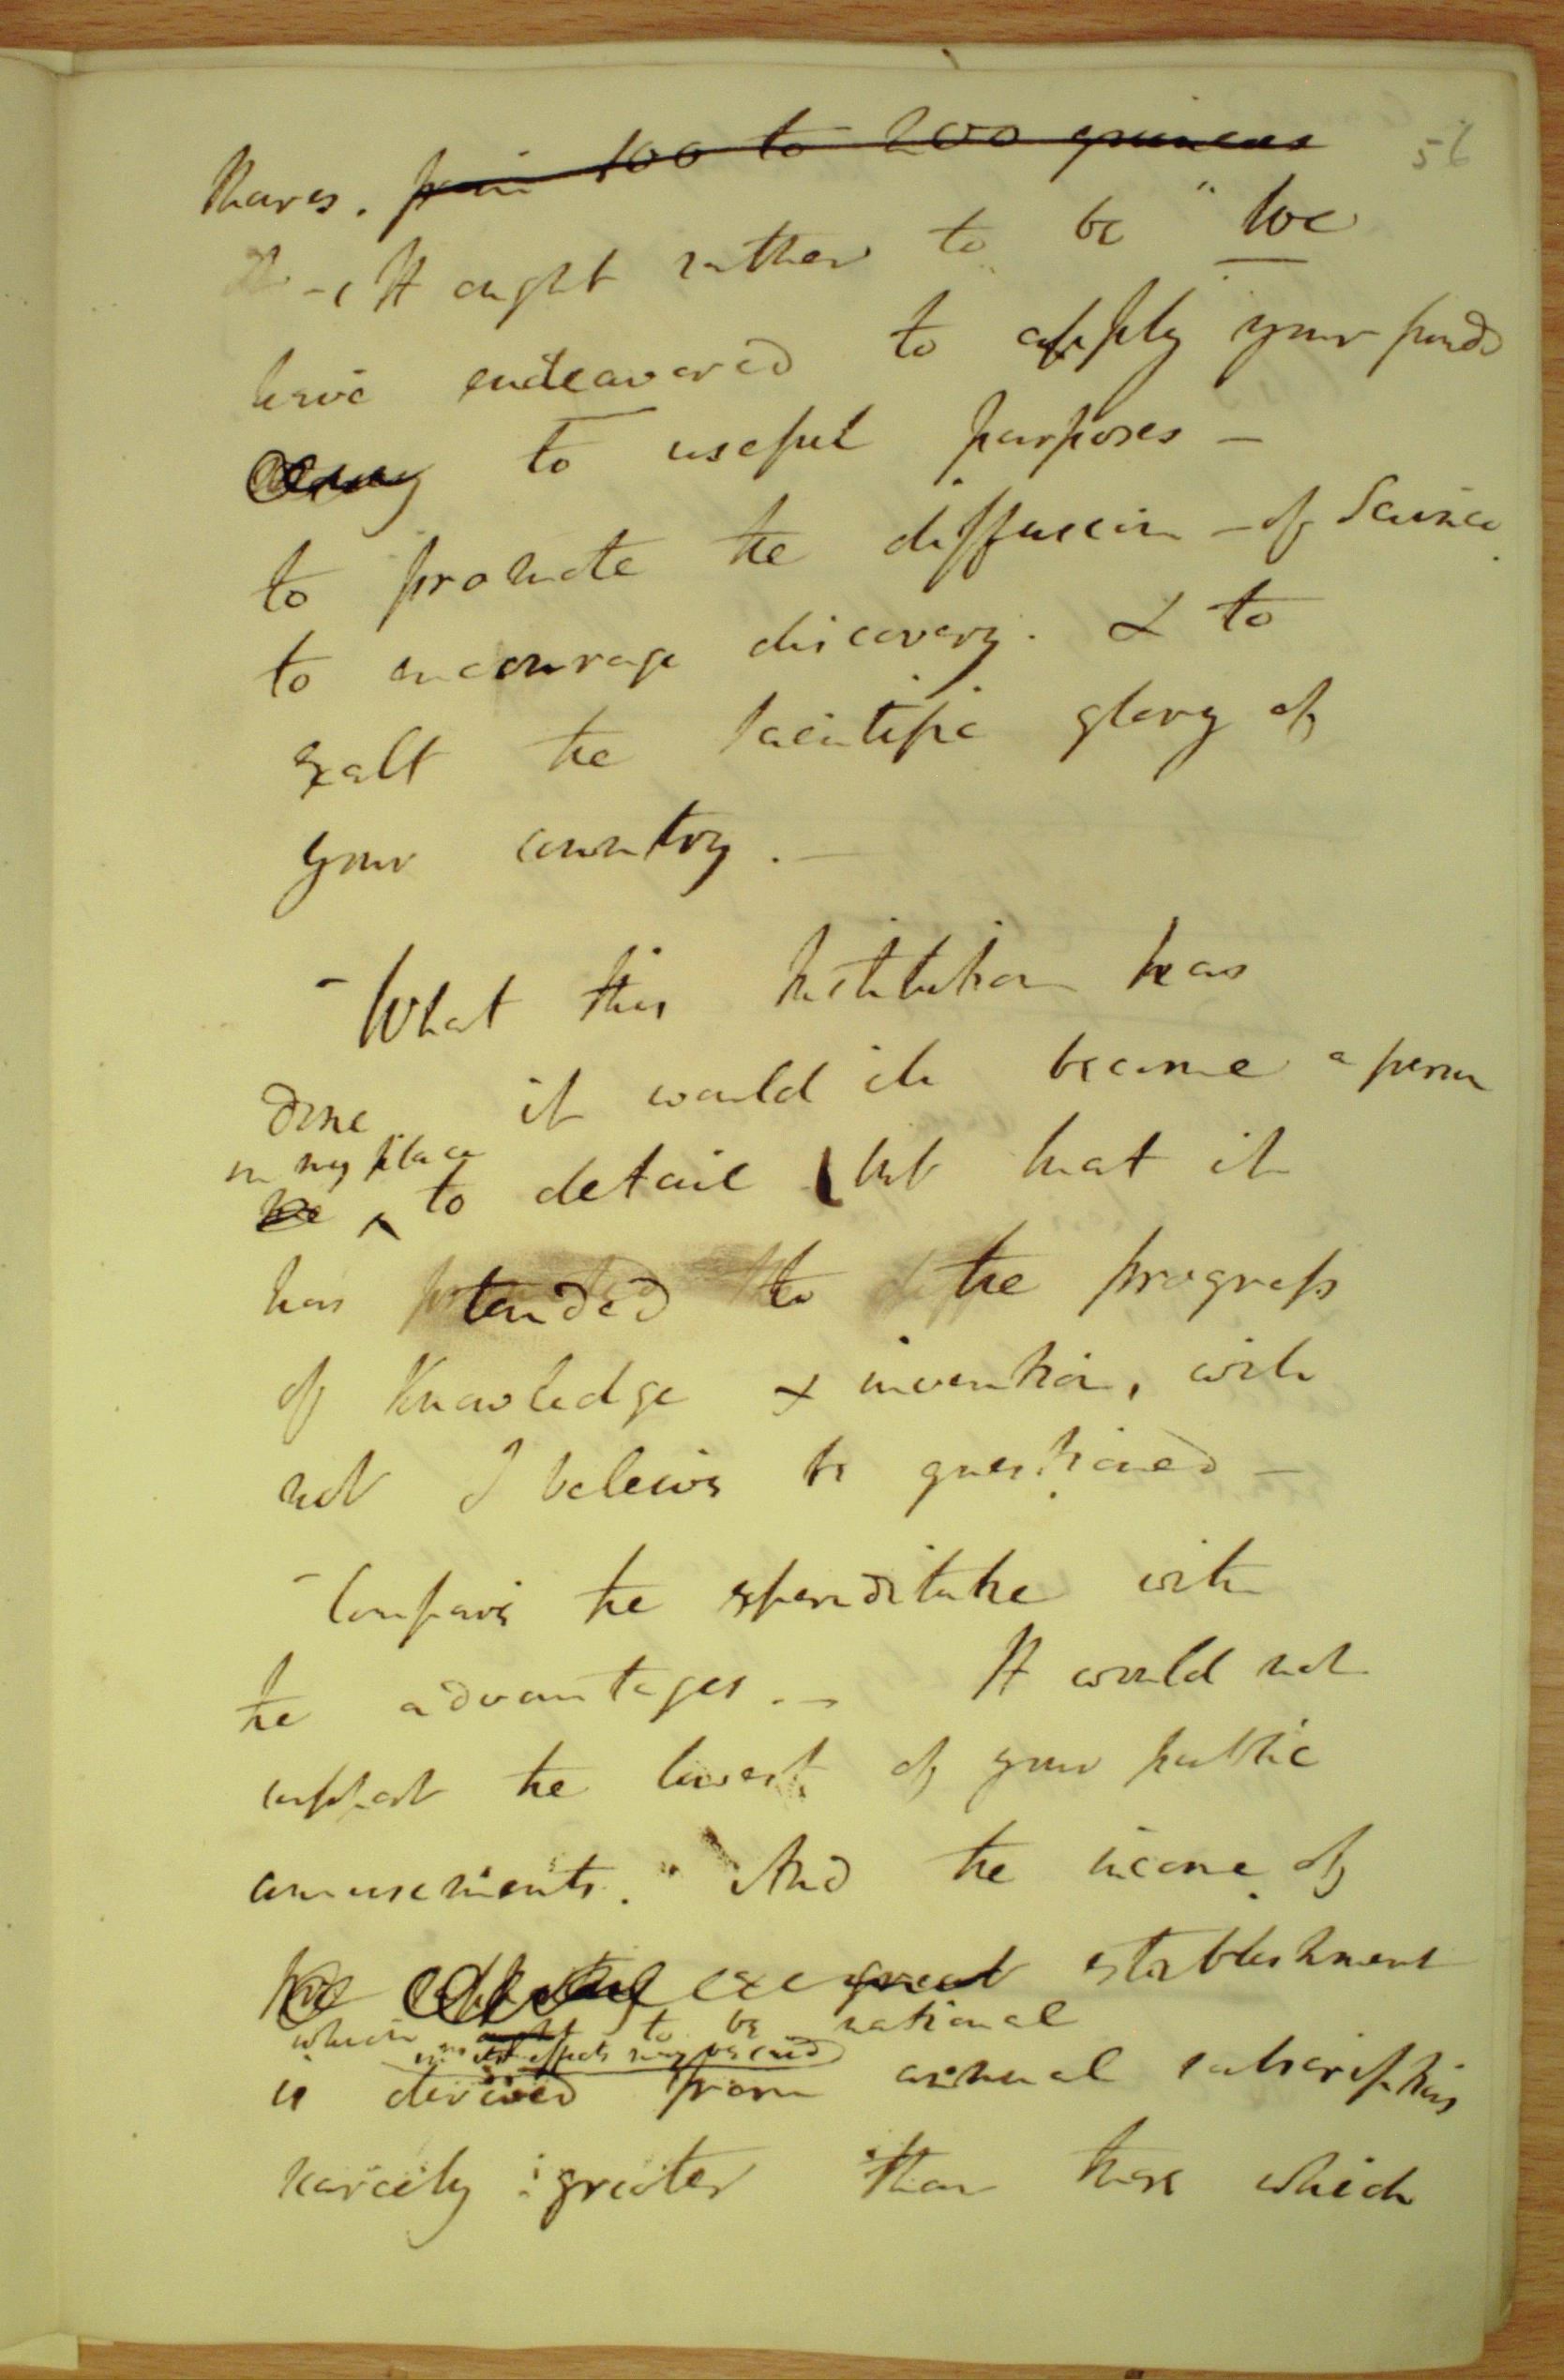 56
shares. from 100 to 200 guineas
- It ought rather to be "We
have endeavored to apply your funds
to useful purposes -
to promote the diffusion - of Science
to encourage discovery. & to
exalt the scientific glory of
your country. -
- What this Institution has
done it would ill become a person
in my place
to detail but that it
has tended to the progress
of Knowledge & invention, will
not I beleive be questioned -
- Compare the expenditure with
the advantages. - It would not
support the lowest of your public
amusements. " And the income of
great establishment
which to be national
in its effects may be said
is derived from annual subscriptions
scarcely greater than those which